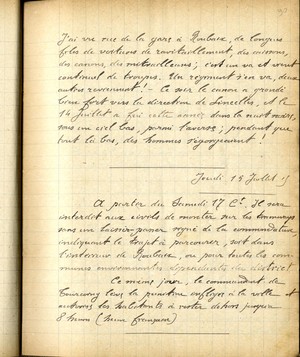 J'ai vu rue de la gare à Roubaix, de longues
files de voitures de ravitaillement, des caissons,
des canons, des mitrailleuses; c'est un va et vient
continuel de troupes. Un régiment s'en va, deux
autres reviennent! - Ce soir le canon a grondé
très fort vers la direction de Linselles, et le
14 Juillet a fini cette année dans la nuit noire,
sous un ciel bas, parmi l'averse; pendant que
tout là bas, des hommes s'égorgement!
Jeudi 15 Juillet 15
A partir du Samedi 17 Ct. il sera
interdit aux civils de monter sur les tramways
sans un laissez-passer signé de la commandature
indiquant le trajet à parcourir, soit dans
l'intérieur de Roubaix, ou pour toutes les com-
munes environnantes dépendantes du district
Ce même jour, le commandant de
Tourcoing lève la punition infligée à la ville et
autorise les habitants à rester dehors jusqu'à
8 heures (heure française)